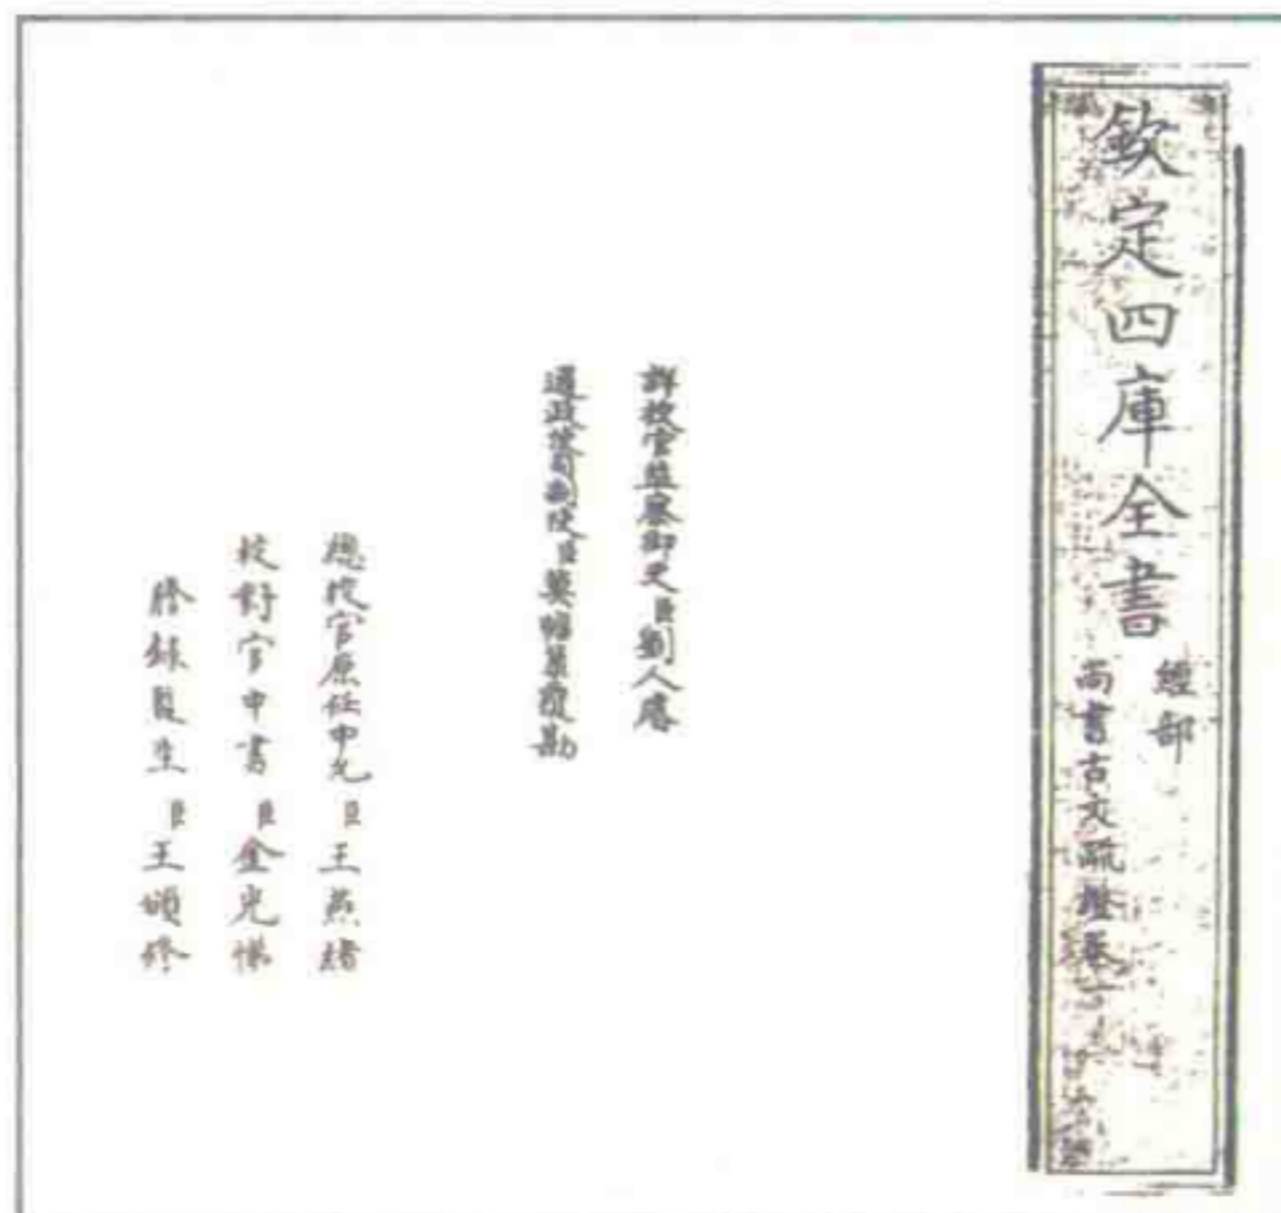 欽定四庫全書
經部
尚書古文疏證卷一
詳校官監察御史臣劉人睿
通政使司副使臣莫瞻菉覆勘
總校官原任中允臣王燕緒
校對官中書臣金光悌
謄錄監生臣王頌終